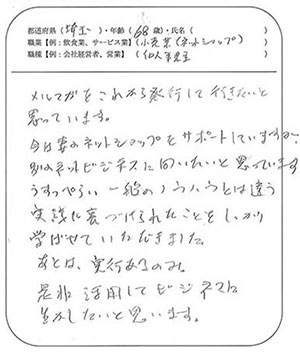 都道府県（埼玉）・年齢（68歳）・氏名（　　　）
職業【例：飲食業、サービス業】（小売業（ネットショップ））
職種【例：会社経営者、営業】（個人事業主）
メルマガをこれから発行して行きたいと
思っています。
今は妻のネットショップをサポートしていますが、
別のネットビジネスに向いたいと思っています
うすっぺらい一般のノウハウとは違う
実践に裏づけられたことをしっかり
学ばせていただきました。
あとは、実行あるのみ。
是非活用してビジネスに
生かしたいと思います。